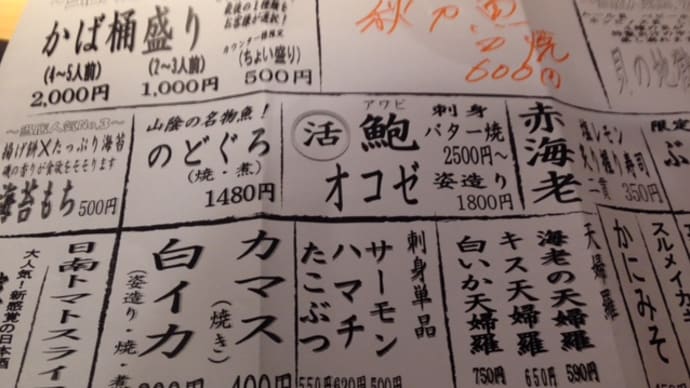 かば桶盛り
(4～5人前)
2,000円
(2～3人前)
1,000円
(ちょい盛り)
500円
焼
600円
揚げ餅×たっぷり海苔
磯の香りが食欲をそそります
海苔もち 500円
山陰の名物魚！
のどぐろ
(焼・煮)
1480円
活
アワビ
鮑
オコゼ
刺身
バター焼
2500円～
姿造り
1800円
赤海老
塩レモン
炙り握り寿司
二貫 350円
限定
大人気！新感覚の日本酒
日南トマトスライ
カマス
(焼き)
400円
白イカ
(姿造り・焼・煮
刺身単品
サーモン
500円
ハマチ
620円
たこぶつ
550円
天婦羅
海老の天婦羅
590円
キス天婦羅
650円
白いか天婦羅
750円
かにみそ
スルメイカ